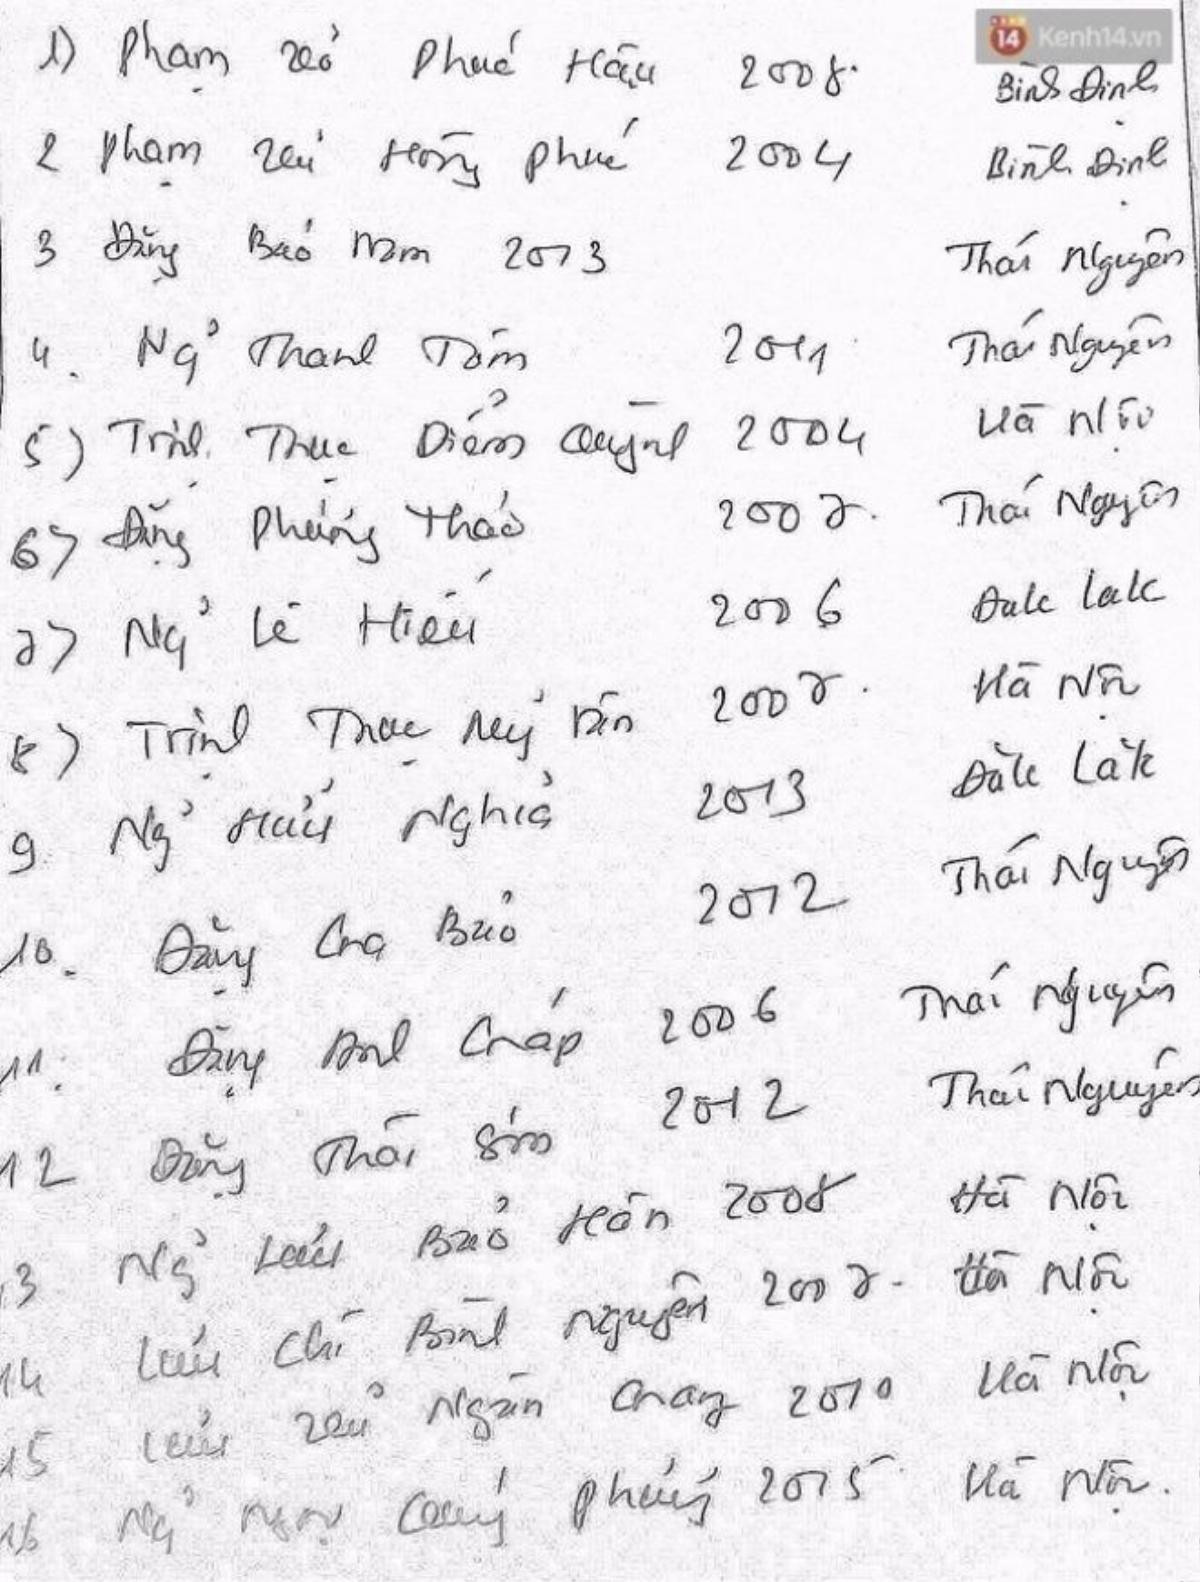 Kenh14.vn
1) Phạm Phúc Hậu 2008. Bình Định
2 Phạm Hồng Phúc 2004 Bình Định
3 Đặng Bảo Nam 2013 Thái Nguyên
4. Ng̉ Thanh Tâm 2011 Thái Nguyên
5) Trịnh Thục Diễm Quỳnh 2004 Hà Nội
6) Đặng Phương Thảo 2007. Thái Nguyên
7) Ng̉ Lê Hiếu 2006 Đak Lak
8) Trịnh Thục Mỹ 2007. Hà Nội
9 Ng̉ Hữu Nghĩa 2013 Đăk Lăk
10. Đặng Gia Bảo 2012 Thái Nguyên
11. Đặng Anh 2006 Thái Nguyên
12 Đặng Thái Sơn 2012 Thái Nguyên
13 Ng̉ Lưu Bảo Hân 2008 Hà Nội
14 Lưu Chí Bình Nguyên 2007. Hà Nội
15 Lưu Ngân 2010 Hà Nội
16 Ng̉ 2015 Hà Nội.